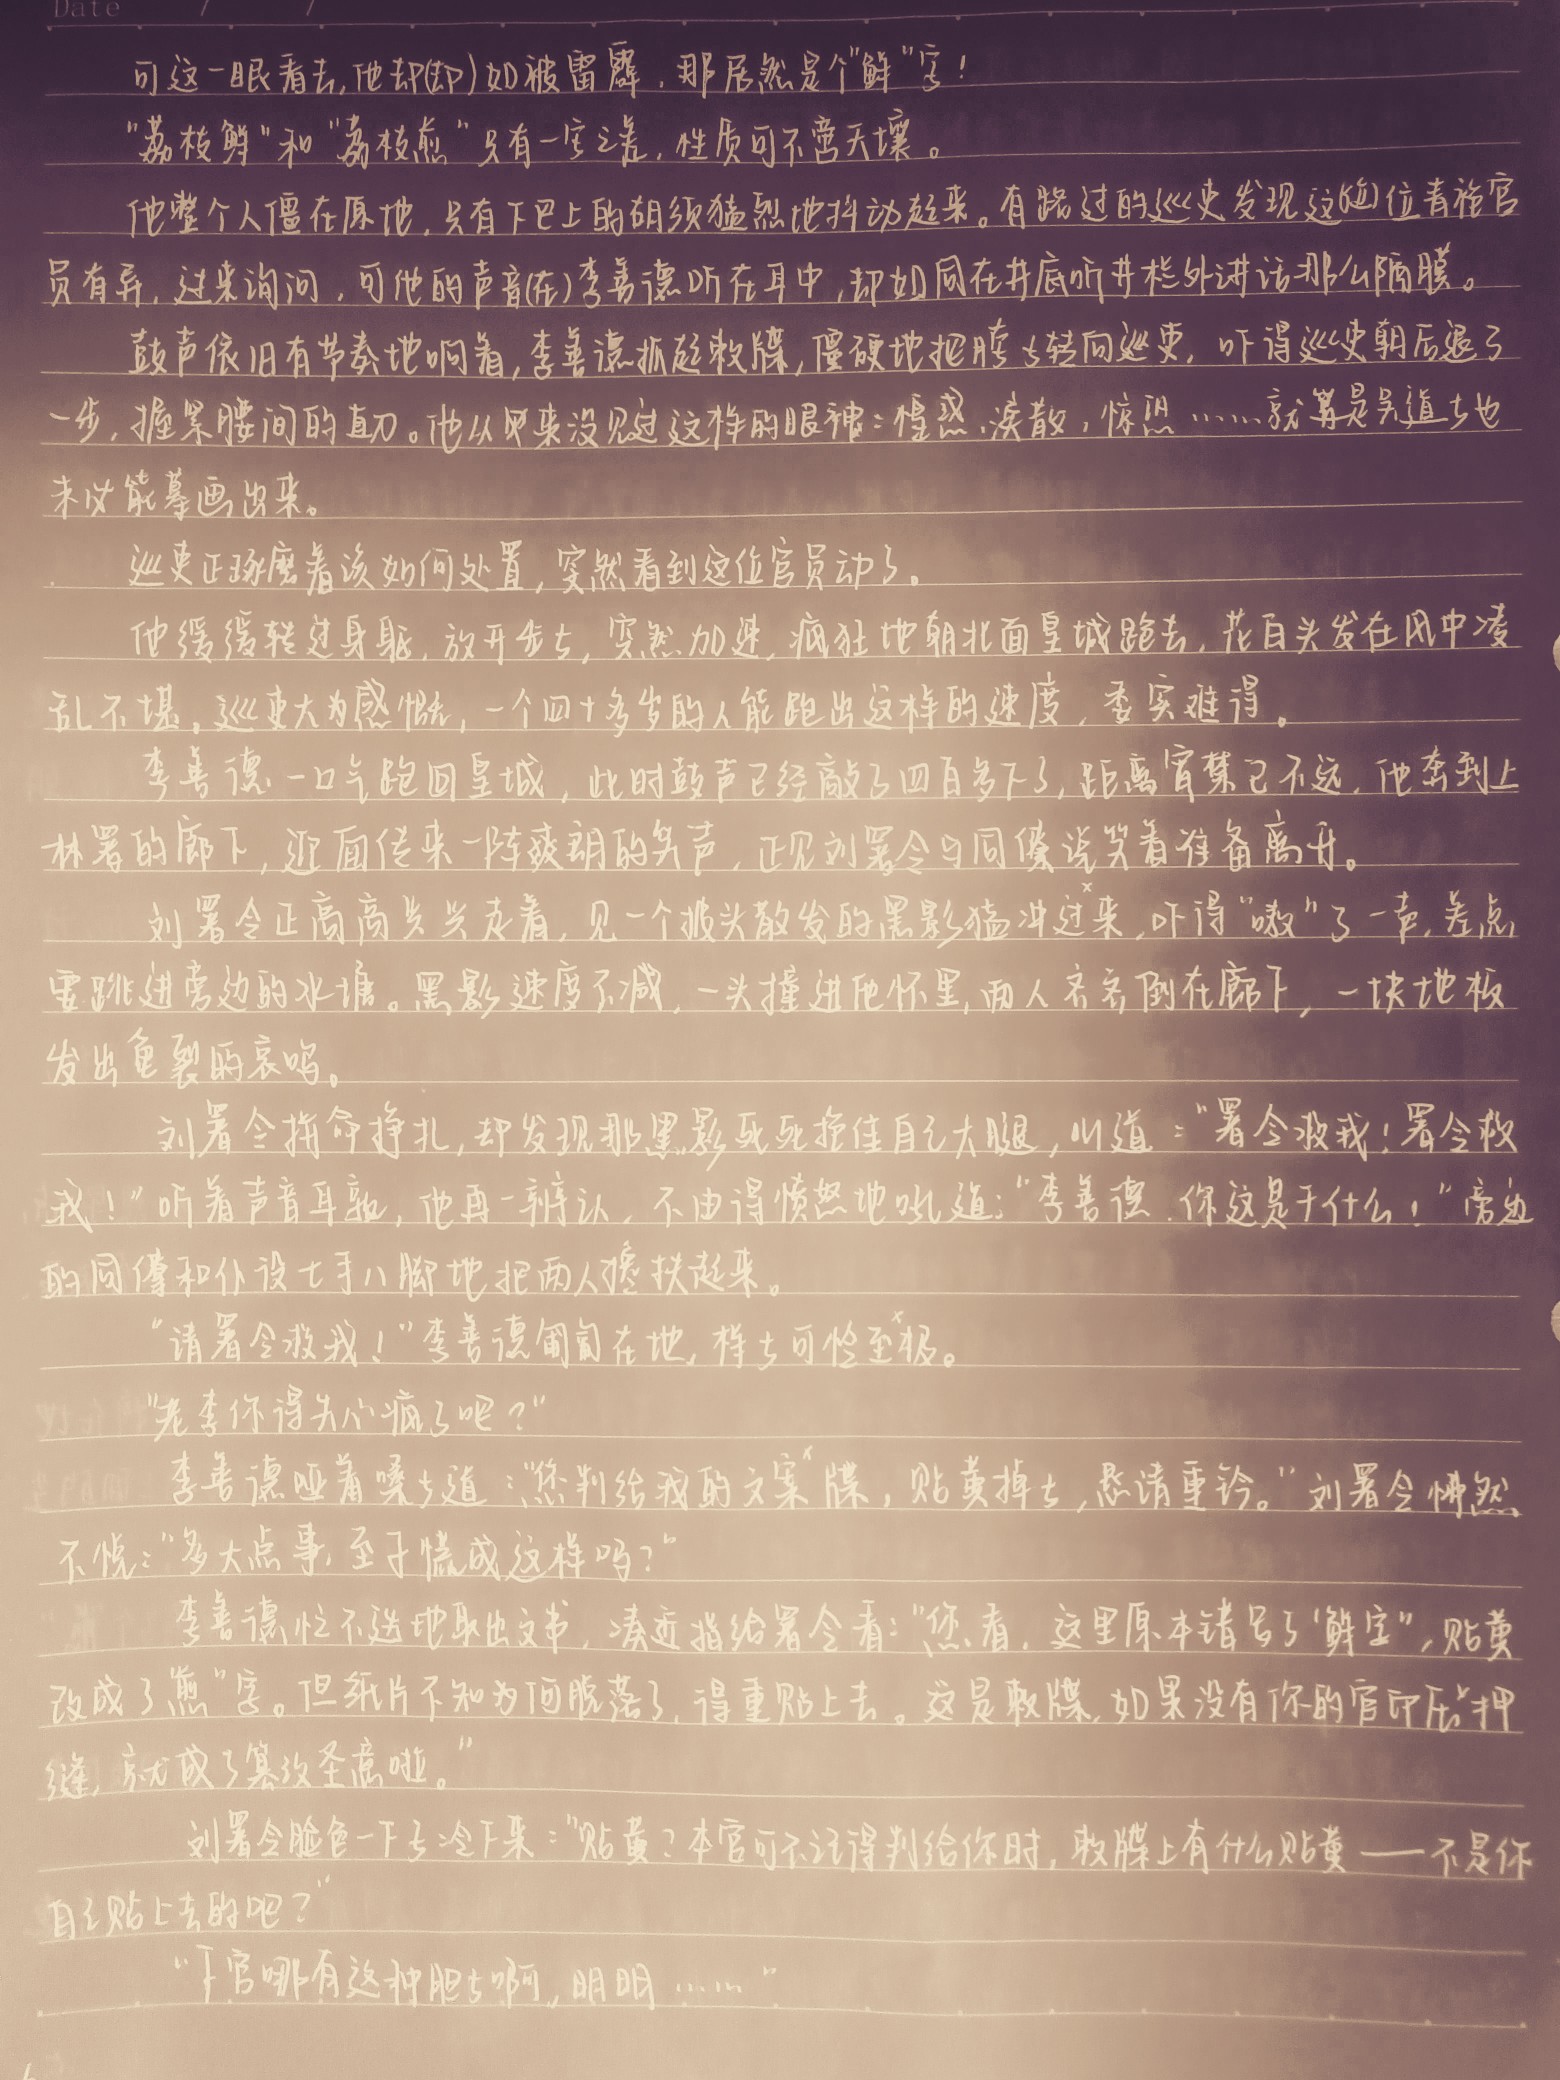 Date / /
可这一眼看去,他却(却)如被雷霹,那居然是个"鲜"字!
"荔枝鲜"和"荔枝煎"只有一字之差,性质可不啻天壤。
他整个人僵在原地,只有下巴上的胡须猛烈地抖动起来。有路过的巡吏发现这位青袍官
员有异,过来询问,可他的声音(在)李善德听在耳中,却如同在井底听井栏外讲话那么隔膜。
鼓声依旧有节奏地响着,李善德抓起敕牒,僵硬地把胯子转向巡吏,吓得巡吏朝后退了
一步,握紧腰间的直刀。他从来没见过这样的眼神:惶惑、涣散,惊恐……就算是吴道子也
未必能摹画出来。
巡吏正琢磨着该如何处置,突然看到这位官员动了。
他缓缓转过身躯,放开步子,突然加速,疯狂地朝北面皇城跑去,花白头发在风中凌
乱不堪。巡吏大为感慨,一个四十多岁的人能跑出这样的速度,委实难得。
李善德一口气跑回皇城,此时鼓声已经敲了四百多下了,距离宵禁已不远,他奔到上
林署的廊下,迎面传来一阵爽朗的笑声,正见刘署令与同僚谈笑着准备离开。
刘署令正高高兴兴走着,见一个披头散发的黑影猛冲过来,吓得"嗷"了一声,差点
要跳进旁边的水塘。黑影速度不减,一头撞进他怀里,两人齐齐倒在廊下,一块地板
发出龟裂的哀鸣。
刘署令拼命挣扎,却发现那黑影死死抱住自己大腿,叫道:"署令救我!署令救
我!"听着声音耳熟,他再一辨认,不由得愤怒地吼道:"李善德,你这是干什么!"旁边
的同僚和仆役七手八脚地把两人搀扶起来。
"请署令救我!"李善德匍匐在地,样子可怜至极。
"老李你得失心疯了吧?"
李善德哑着嗓子道:"您判给我的文案牒,贴黄掉了,恳请重钤。"刘署令怫然
不悦:"多大点事,至于慌成这样吗?"
李善德忙不迭地取出文书,凑近指给署令看:"您看,这里原本错写了'鲜字",贴黄
改成了煎"字。但纸片不知为何脱落了,得重贴上去。这是敕牒,如果没有你的官印压押
缝,就成了篡改圣意啦。"
刘署令脸色一下子冷下来:"贴黄?本官可不记得判给你时,敕牒上有什么贴黄——不是你
自己贴上去的吧?"
"下官哪有这种胆子啊,明明……"